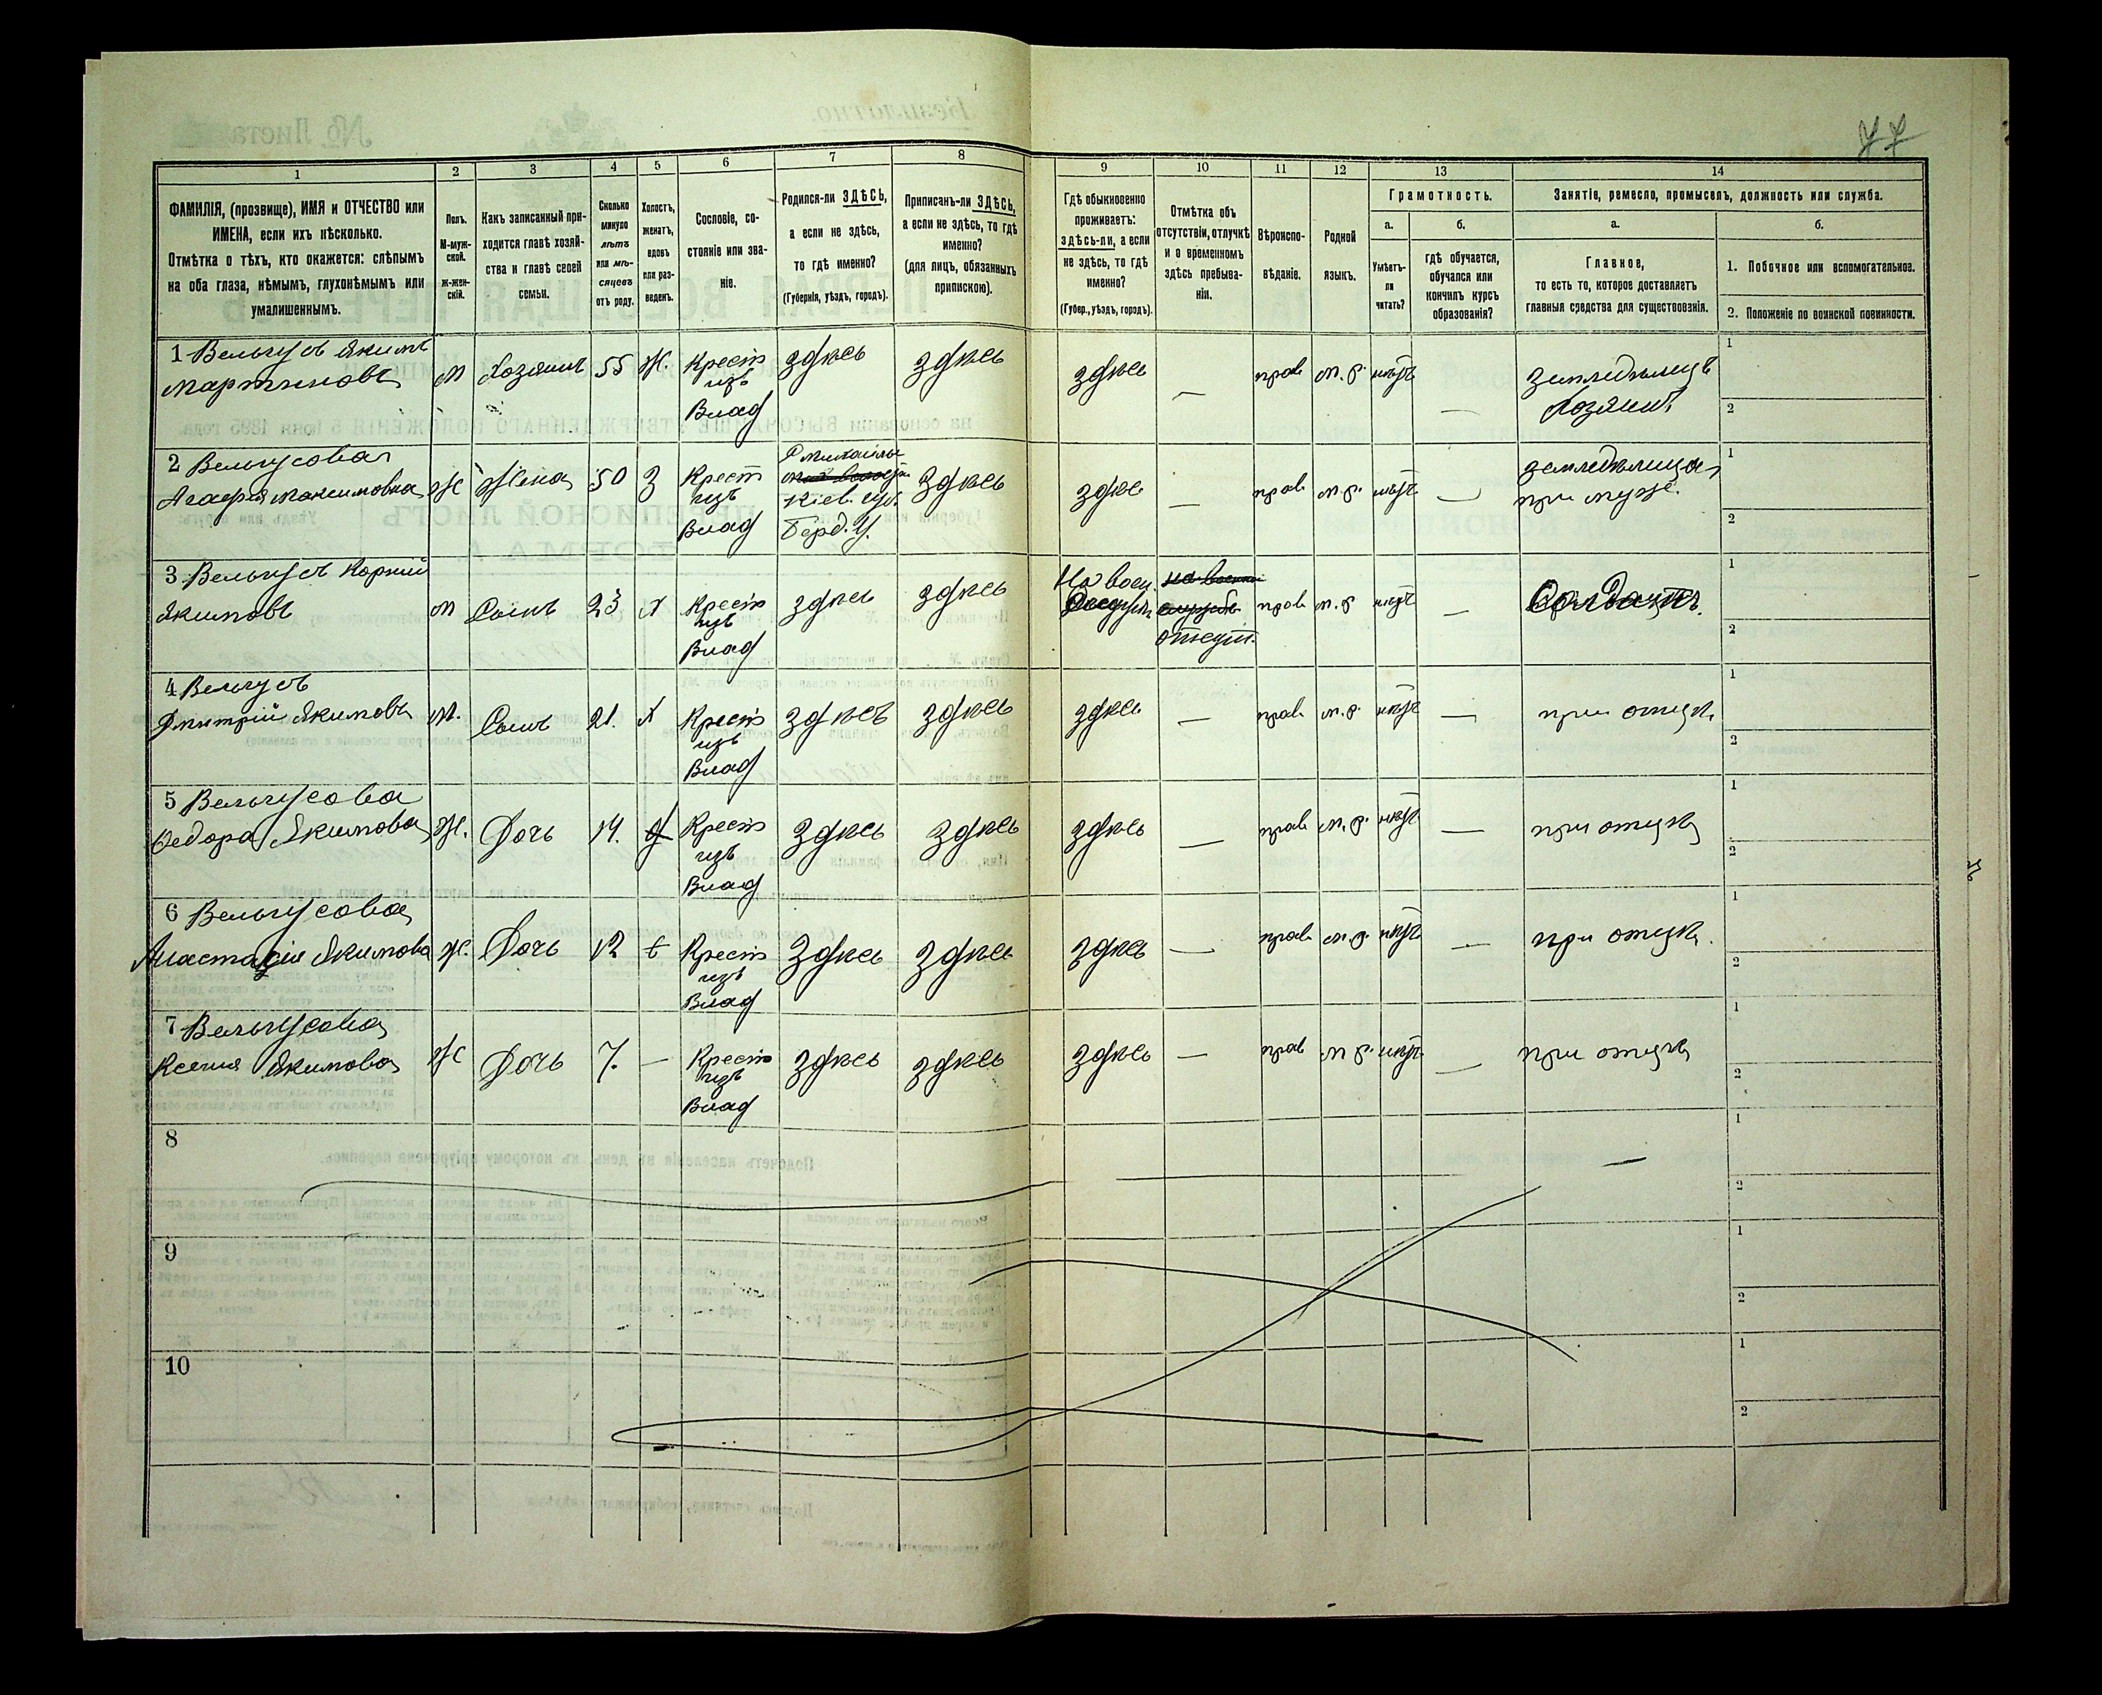 77
1 2 3 4 5 6 7 8 9 10 11 12 13 14
ФАМИЛІЯ, (прозвище), ИМЯ и ОТЧЕСТВО или
ИМЕНА, если ихъ нѣсколько.
Отмѣтка о тѣхъ, кто окажется: слѣпымъ
на оба глаза, нѣмымъ, глухонѣмымъ или
умалишеннымъ.
Полъ.
М-муж-
ской.
ж-жен-
скій.
Какъ записанный при-
ходится главѣ хозяй-
ства и главѣ своей
семьи.
Сколько
минуло
лѣтъ
или мѣ-
сяцевъ
отъ роду.
Холостъ,
женатъ,
вдовъ
или раз-
веденъ.
Сословіе, со-
стояніе или зва-
ніе.
Родился-ли ЗДѢСЬ,
а если не здѣсь,
то гдѣ именно?
(Губернія, уѣздъ, городъ).
Приписанъ-ли ЗДѢСЬ,
а если не здѣсь, то гдѣ
именно?
(для лицъ, обязанныхъ
припискою).
Гдѣ обыкновенно
проживаетъ:
здѣсь-ли, а если
не здѣсь, то гдѣ
именно?
(Губер., уѣздъ, городъ).
Отмѣтка объ
отсутствіи, отлучкѣ
и о временномъ
здѣсь пребыва-
ніи.
Вѣроиспо-
вѣданіе.
Родной
языкъ.
Грамотность.
а.
Умѣетъ-
ли
читать?
б.
гдѣ обучается,
обучался или
кончилъ курсъ
образованія?
Занятіе, ремесло, промыселъ, должность или служба.
а.
Главное,
то есть то, которое доставляетъ
главныя средства для существованія.
б.
1. Побочное или вспомогательное.
2. Положеніе по воинской повинности.
1 Вельгусъ Якимъ
Мартиновъ
М
Хозяинъ
55
Ж.
Крест
изъ
Влад
здѣсь
здѣсь
здѣсь
—
прав
м. р.
нѣтъ
—
земледѣлецъ
Хозяинъ
1
2
2 Вельгусова
Агафія Максимовна
Ж
Жена
50
З
Крест
изъ
Влад
Кіев. губ.
Берд. у.
здѣсь
здѣсь
—
прав
м. р.
нѣтъ
—
земледѣлица
при мужѣ.
1
2
3 Вельгусъ Корній
Якимовъ
М
Сынъ
23
Х
Крест
изъ
Влад
здѣсь
здѣсь
На воен.
—
прав
м. р
нѣтъ
—
Солдатъ.
1
2
4 Вельгусъ
Дмитрій Якимовъ
М.
Сынъ
21.
Х
Крест
изъ
Влад
здѣсь
здѣсь
здѣсь
—
прав
м. р.
нѣтъ
—
при отцѣ
1
2
5 Вельгусова
Федора Якимова
Ж.
Дочь
14.
Крест
изъ
Влад
здѣсь
здѣсь
здѣсь
—
прав
м. р.
нѣтъ
—
при отцѣ
1
2
6 Вельгусова
Анастасія Якимова
Ж.
Дочь
12
Крест
изъ
Влад
здѣсь
здѣсь
здѣсь
—
прав
м. р.
нѣтъ
—
при отцѣ.
1
2
7 Вельгусова
Ксенія Якимова
Ж
Дочь
7.
—
Крест
изъ
Влад
здѣсь
здѣсь
здѣсь
—
прав
м р.
нѣтъ
—
при отцѣ
1
2
8
1
2
9
1
2
10
1
2